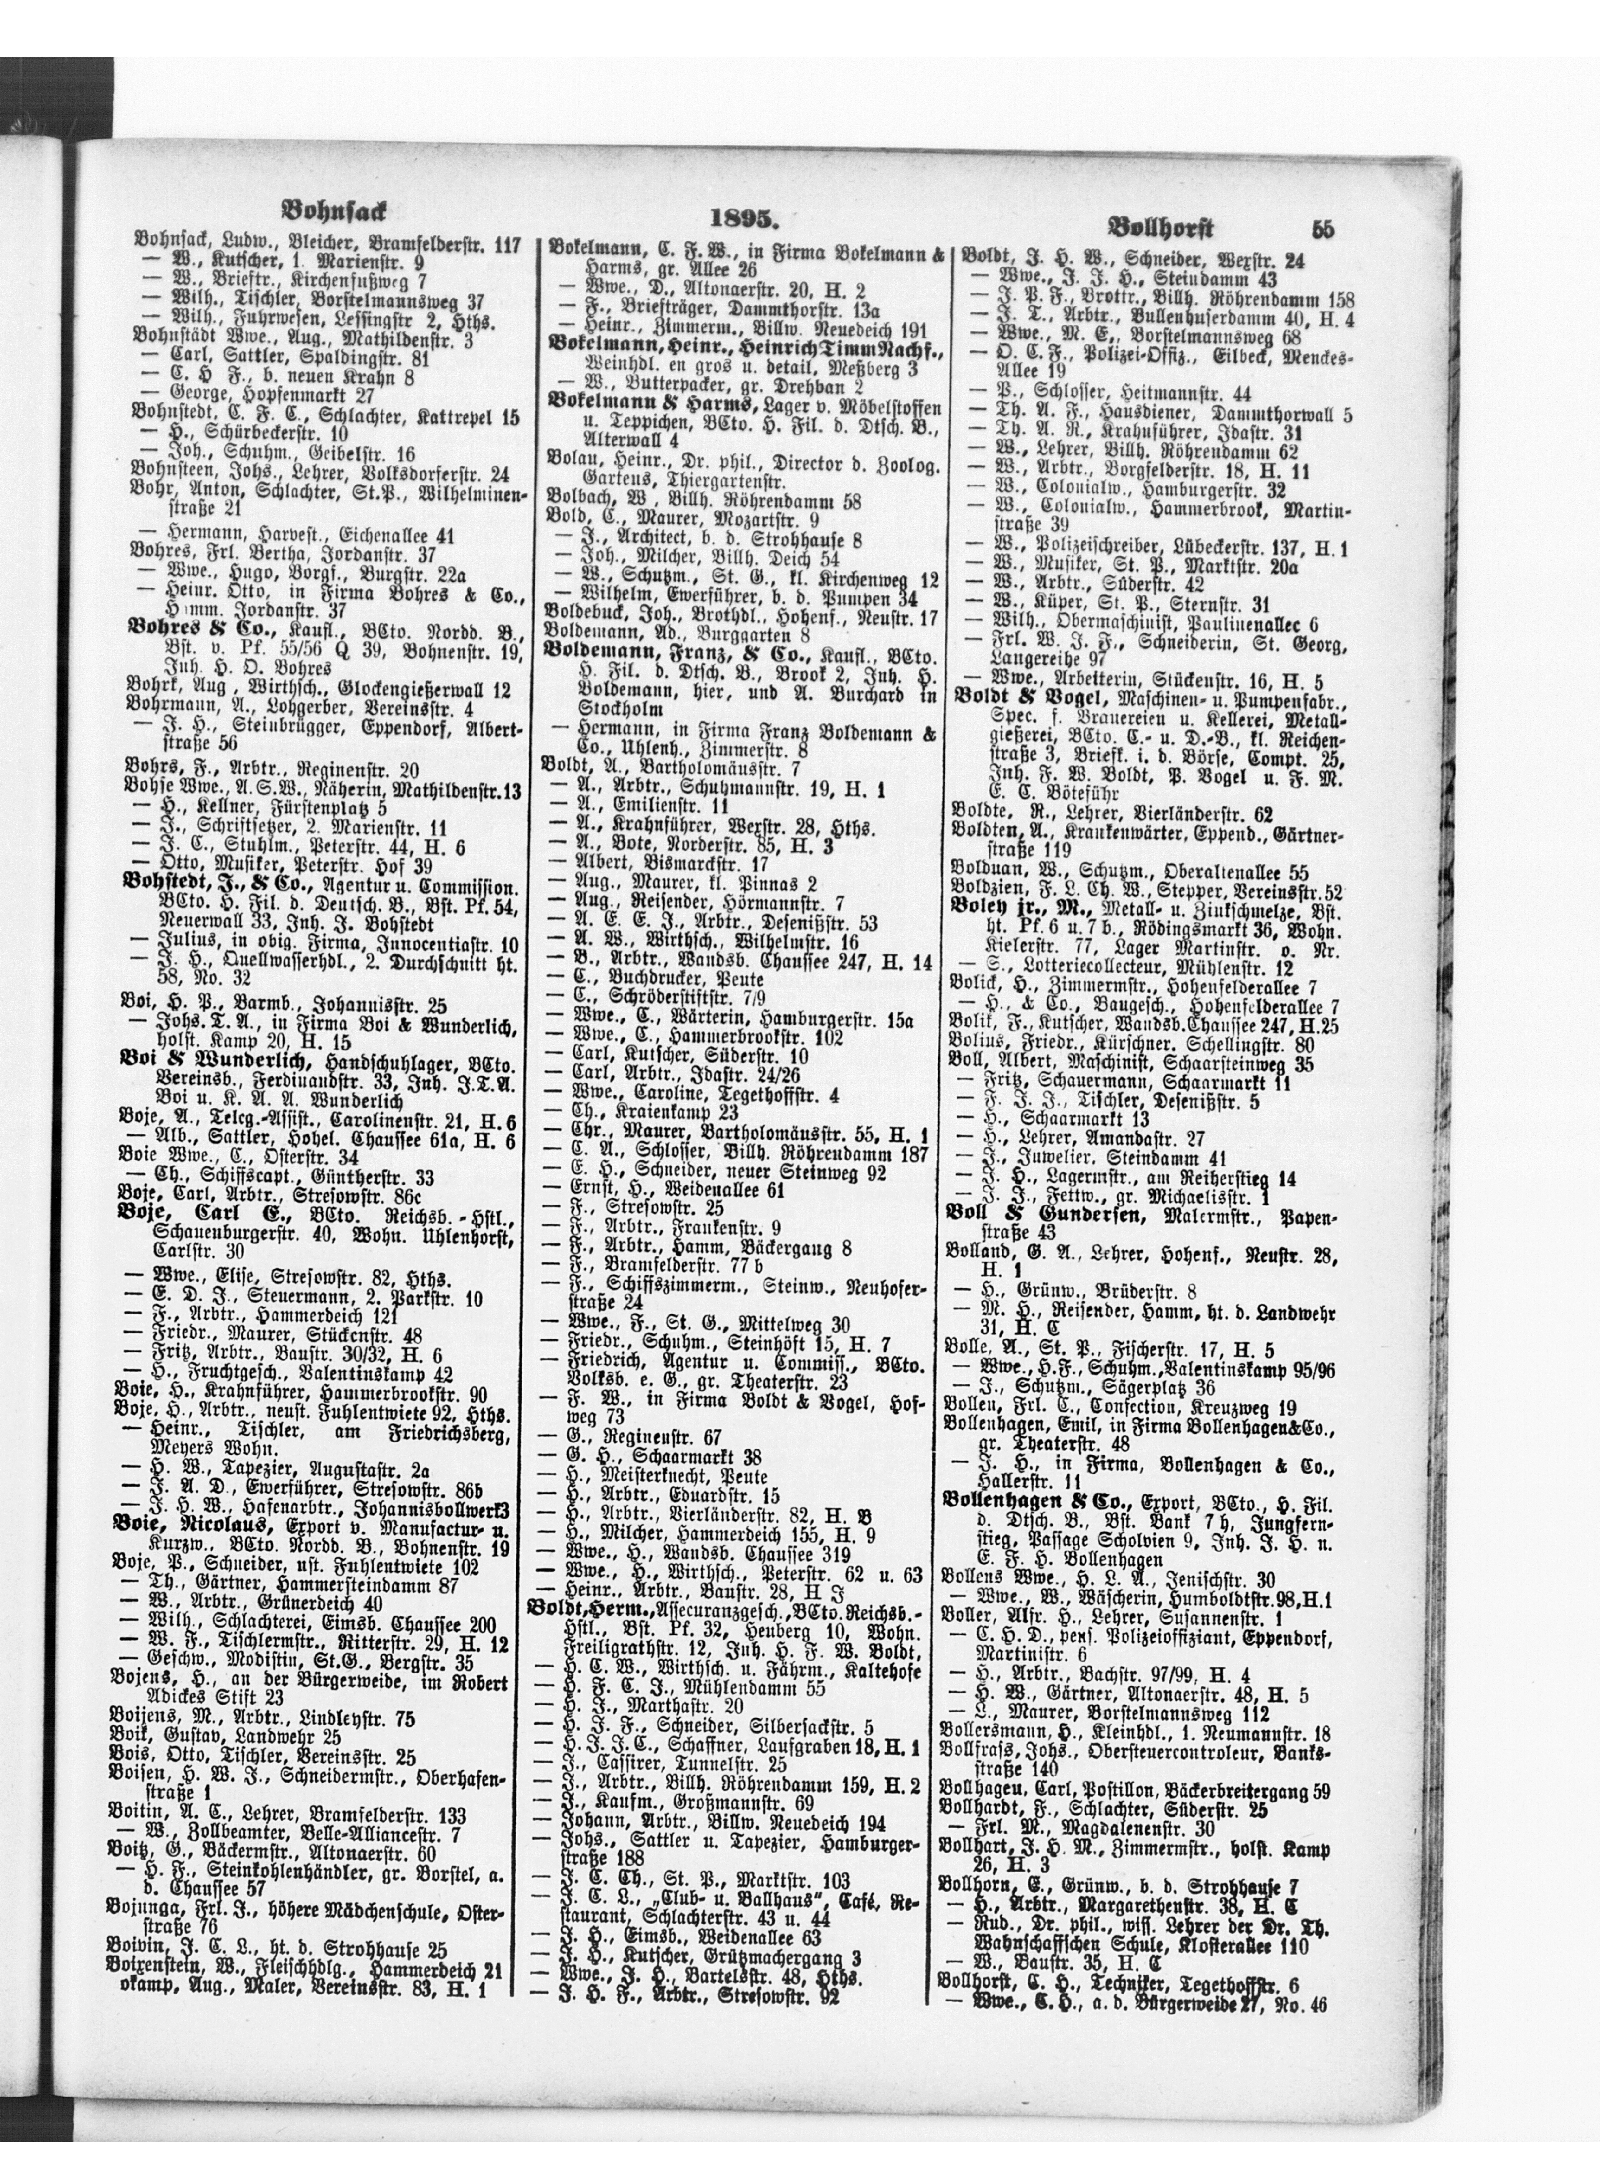 Bohnsack
1895.
Bollhorst 55
Bohnsack, Ludw., Bleicher, Bramfelderstr. 117
— W., Kutscher, 1. Marienstr. 9
— W., Brieftr., Kirchenfußweg 7
— Wilh., Tischler, Borstelmannsweg 37
— Wilh., Fuhrwesen, Lessingstr 2, Hths.
Bohnstädt Wwe., Aug., Mathildenstr. 3
— Carl, Sattler, Spaldingstr. 81
— C. H F., b. neuen Krahn 8
— George, Hopfenmarkt 27
Bohnstedt, C. F. C., Schlachter, Kattrepel 15
— H., Schürbeckerstr. 10
— Joh., Schuhm., Geibelstr. 16
Bohnsteen, Johs., Lehrer, Volksdorferstr. 24
Bohr, Anton, Schlachter, St.P., Wilhelminen-
straße 21
— Hermann, Harvest., Eichenallee 41
Bohres, Frl. Bertha, Jordanstr. 37
— Wwe., Hugo, Borgf., Burgstr. 22a
— Heinr. Otto, in Firma Bohres & Co.,
Hamm. Jordanstr. 37
Bohres & Co., Kaufl., BCto. Nordd. B.,
Bst. v. Pf. 55/56 Q 39, Bohnenstr. 19,
Inh. H. O. Bohres
Bohrk, Aug., Wirthsch., Glockengießerwall 12
Bohrmann, A., Lohgerber, Vereinsstr. 4
— J. H., Steinbrügger, Eppendorf, Albert-
straße 56
Bohrs, F., Arbtr., Reginenstr. 20
Bohse Wwe., A.S.W., Näherin, Mathildenstr.13
— H., Kellner, Fürstenplatz 5
— J., Schriftsetzer, 2. Marienstr. 11
— J. C., Stuhlm., Peterstr. 44, H. 6
— Otto, Musiker, Peterstr. Hof 39
Bohstedt, J., & Co., Agentur u. Commission.
BCto. H. Fil. d. Deutsch. B., Bst. Pf. 54,
Neuerwall 33, Inh. J. Bohstedt
— Julius, in obig. Firma, Innocentiastr. 10
— J. H., Quellwasserhdl., 2. Durchschnitt ht.
58, No. 32
Boi, H. P., Barmb., Johannisstr. 25
— Johs. T. A., in Firma Boi & Wunderlich,
holst. Kamp 20, H. 15
Boi & Wunderlich, Handschuhlager, BCto.
Vereinsb., Ferdinandstr. 33, Inh. J.T.A.
Boi u. K. A. A. Wunderlich
Boje, A., Teleg.-Assist., Carolinenstr. 21, H. 6
— Alb., Sattler, Hohel. Chaussee 61a, H. 6
Boie Wwe., C., Osterstr. 34
— Ch., Schiffscapt., Güntherstr. 33
Boje, Carl, Arbtr., Stresowstr. 86c
Boje, Carl E., BCto. Reichsb.-Hstl.,
Schauenburgerstr. 40, Wohn. Uhlenhorst,
Carlstr. 30
— Wwe., Elise, Stresowstr. 82, Hths.
— E. D. J., Steuermann, 2. Parkstr. 10
— F., Arbtr., Hammerdeich 121
— Friedr., Maurer, Stückenstr. 48
— Fritz, Arbtr., Baustr. 30/32, H. 6
— H., Fruchtgesch., Valentinskamp 42
Boie, H., Krahnführer, Hammerbrookstr. 90
Boje, H., Arbtr., neust. Fuhlentwiete 92, Hths.
— Heinr., Tischler, am Friedrichsberg,
Meyers Wohn.
— H. W., Tapezier, Augustastr. 2a
— J. A. D., Ewerführer, Stresowstr. 86b
— J. H. W., Hafenarbtr., Johannisbollwerk3
Boie, Nicolaus, Export v. Manufactur- u.
Kurzw., BCto. Nordd. B., Bohnenstr. 19
Boje, P., Schneider, nst. Fuhlentwiete 102
— Th., Gärtner, Hammersteindamm 87
— W., Arbtr., Grünerdeich 40
— Wilh., Schlachterei, Eimsb. Chaussee 200
— W. F., Tischlermstr., Ritterstr. 29, H. 12
— Geschw., Modistin, St.G., Bergstr. 35
Bojens, H., an der Bürgerweide, im Robert
Adickes Stift 23
Boijens, M., Arbtr., Lindleystr. 75
Boik, Gustav, Landwehr 25
Bois, Otto, Tischler, Vereinsstr. 25
Boisen, H. W. J., Schneidermstr., Oberhafen-
straße 1
Boitin, A. C., Lehrer, Bramfelderstr. 133
— W., Zollbeamter, Belle-Alliancestr. 7
Boitz, G., Bäckermstr., Altonaerstr. 60
— H. F., Steinkohlenhändler, gr. Borstel, a.
d. Chaussee 57
Bojunga, Frl. J., höhere Mädchenschule, Oster-
straße 76
Boivin, J. C. L., ht. d. Strohhause 25
Boixenstein, W., Fleischhdlg., Hammerdeich 21
okamp, Aug., Maler, Vereinsstr. 83, H. 1
Bokelmann, C. F. W., in Firma Bokelmann &
Harms, gr. Allee 26
— Wwe., D., Altonaerstr. 20, H. 2
— F., Briefträger, Dammthorstr. 13a
— Heinr., Zimmerm., Billw. Neuedeich 191
Bokelmann, Heinr., Heinrich Timm Nachf.,
Weinhdl. en gros u. detail, Meßberg 3
— W., Butterpacker, gr. Drehban 2
Bokelmann & Harms, Lager v. Möbelstoffen
u. Teppichen, BCto. H. Fil. d. Dtsch. B.,
Alterwall 4
Bolau, Heinr., Dr. phil., Director d. Zoolog.
Gartens, Thiergartenstr.
Bolbach, W , Billh. Röhrendamm 58
Bold, C., Maurer, Mozartstr. 9
— J., Architect, b. d. Strohhause 8
— Joh., Milcher, Billh. Deich 54
— W., Schutzm., St. G., kl. Kirchenweg 12
— Wilhelm, Ewerführer, b. d. Pumpen 34
Boldebuck, Joh., Brothdl., Hohenf., Neustr. 17
Boldemann, Ad., Burggarten 8
Boldemann, Franz, & Co., Kaufl., BCto.
H. Fil. d. Dtsch. B., Brook 2, Inh. H.
Boldemann, hier, und A. Burchard in
Stockholm
— Hermann, in Firma Franz Boldemann &
Co., Uhlenh., Zimmerstr. 8
Boldt, A., Bartholomäusstr. 7
— A., Arbtr., Schuhmannstr. 19, H. 1
— A., Emilienstr. 11
— A., Krahnführer, Wexstr. 28, Hths.
— A., Bote, Norderstr. 85, H. 3
— Albert, Bismarckstr. 17
— Aug., Maurer, kl. Pinnas 2
— Aug., Reisender, Hörmannstr. 7
— A. E. E. J., Arbtr., Desenißstr. 53
— A. W., Wirthsch., Wilhelmstr. 16
— B., Arbtr., Wandsb. Chaussee 247, H. 14
— C., Buchdrucker, Peute
— C., Schröderstiftstr. 7/9
— Wwe., C., Wärterin, Hamburgerstr. 15a
— Wwe., C., Hammerbrookstr. 102
— Carl, Kutscher, Süderstr. 10
— Carl, Arbtr., Idastr. 24/26
— Wwe., Caroline, Tegethoffstr. 4
— Ch., Kraienkamp 23
— Chr., Maurer, Bartholomäusstr. 55, H. 1
— C. A., Schlosser, Billh. Röhrendamm 187
— E. H., Schneider, neuer Steinweg 92
— Ernst, H., Weidenallee 61
— F., Stresowstr. 25
— F., Arbtr., Frankenstr. 9
— F., Arbtr., Hamm, Bäckergang 8
— F., Bramfelderstr. 77b
— F., Schiffszimmerm., Steinw., Neuhofer-
straße 24
— Wwe., F., St. G., Mittelweg 30
— Friedr., Schuhm., Steinhöft 15, H. 7
— Friedrich, Agentur u. Commiss., BCto.
Volksb. e. G., gr. Theaterstr. 23
— F. W., in Firma Boldt & Vogel, Hof-
weg 73
— G., Reginenstr. 67
— G. H., Schaarmarkt 38
— H., Meisterknecht, Peute
— H., Arbtr., Eduardstr. 15
— H., Arbtr., Vierländerstr. 82, H. B
— H., Milcher, Hammerdeich 155, H. 9
— Wwe., H., Wandsb. Chaussee 319
— Wwe., H., Wirthsch., Peterstr. 62 u. 63
— Heinr., Arbtr., Baustr. 28, H J
Boldt, Herm., Assecuranzgesch., BCto. Reichsb.-
Hstl., Bst. Pf. 32, Heuberg 10, Wohn.
Freiligrathstr. 12, Inh. H. F. W. Boldt,
— H. C. W., Wirthsch. u. Fährm., Kaltehofe
— H. F. C. J., Mühlendamm 55
— H. J., Marthastr. 20
— H. J. F., Schneider, Silbersackstr. 5
— H. J. J. C., Schaffner, Laufgraben 18, H. 1
— J., Cassirer, Tunnelstr. 25
— J., Arbtr., Billh. Röhrendamm 159, H. 2
— J., Kaufm., Großmannstr. 69
— Johann, Arbtr., Billw. Neuedeich 194
— Johs., Sattler u. Tapezier, Hamburger-
straße 188
— J. C. Ch., St. P., Marktstr. 103
— J. C. L., „Club- u. Ballhaus“, Café, Re-
staurant, Schlachterstr. 43 u. 44
— J. H., Eimsb., Weidenallee 63
— J. H., Kutscher, Grützmachergang 3
— Wwe., J. H., Bartelsstr. 48, Hths.
— J. H. F., Arbtr., Stresowstr. 92
Boldt, J. H. W., Schneider, Wexstr. 24
— Wwe., J. J. H., Steindamm 43
— J. P. F., Brottr., Billh. Röhrendamm 158
— J. T., Arbtr., Bullenhuserdamm 40, H. 4
— Wwe., M. E., Borstelmannsweg 68
— O. C. F., Polizei-Offiz., Eilbeck, Menckes-
Allee 19
— P., Schlosser, Heitmannstr. 44
— Th. A. F., Hausdiener, Dammthorwall 5
— Th. A. R., Krahnführer, Idastr. 31
— W., Lehrer, Billh. Röhrendamm 62
— W., Arbtr., Borgfelderstr. 18, H. 11
— W., Colonialw., Hamburgerstr. 32
— W., Colonialw., Hammerbrook, Martin-
straße 39
— W., Polizeischreiber, Lübeckerstr. 137, H. 1
— W., Musiker, St. P., Marktstr. 20a
— W., Arbtr., Süderstr. 42
— W., Küper, St. P., Sternstr. 31
— Wilh., Obermaschinist, Paulinenallee 6
— Frl. W. J. F., Schneiderin, St. Georg,
Langereihe 97
— Wwe., Arbeiterin, Stückenstr. 16, H. 5
Boldt & Vogel, Maschinen- u. Pumpenfabr.,
Spec. f. Brauereien u. Kellerei, Metall-
gießerei, BCto. C.- u. D.-B., kl. Reichen-
straße 3, Briefk. i. d. Börse, Compt. 25,
Inh. F. W. Boldt, P. Vogel u. F. M.
E. C. Böteführ
Boldte, R., Lehrer, Vierländerstr. 62
Boldten, A., Krankenwärter, Eppend., Gärtner-
straße 119
Bolduan, W., Schutzm., Oberaltenallee 55
Boldzien, F. L. Ch. W., Stepper, Vereinsstr. 52
Boley jr., M., Metall- u. Zinkschmelze, Bst.
ht. Pf. 6 u. 7b., Rödingsmarkt 36, Wohn.
Kielerstr. 77, Lager Martinstr. o. Nr.
— S., Lotteriecollecteur, Mühlenstr. 12
Bolick, H., Zimmermstr., Hohenfelderallee 7
— H., & Co., Baugesch., Hohenfelderallee 7
Bolik, F., Kutscher, Wandsb. Chaussee 247, H.25
Bolius, Friedr., Kürschner, Schellingstr. 80
Boll, Albert, Maschinist, Schaarsteinweg 35
— Fritz, Schauermann, Schaarmarkt 11
— F. J. J., Tischler, Desenißstr. 5
— H., Schaarmarkt 13
— H., Lehrer, Amandastr. 27
— J., Juwelier, Steindamm 41
— J. H., Lagermstr., am Reiherstieg 14
— J. J., Fettw., gr. Michaelisstr. 1
Boll & Gundersen, Malermstr., Papen-
straße 43
Bolland, G. A., Lehrer, Hohenf., Neustr. 28,
H. 1
— H., Grünw., Brüderstr. 8
— M. H., Reisender, Hamm, ht. d. Landwehr
31, H. C
Bolle, A., St. P., Fischerstr. 17, H. 5
— Wwe., H.F., Schuhm., Valentinskamp 95/96
— J., Schutzm., Sägerplatz 36
Bollen, Frl. C., Confection, Kreuzweg 19
Bollenhagen, Emil, in Firma Bollenhagen&Co.,
gr. Theaterstr. 48
— J. H., in Firma, Bollenhagen & Co.,
Hallerstr. 11
Bollenhagen & Co., Export, BCto., H. Fil.
d. Dtsch. B., Bst. Bank 7h, Jungfern-
stieg, Passage Scholvien 9, Inh. J. H. u.
E. F. H. Bollenhagen
Bollens Wwe., H. L. A., Jenischstr. 30
— Wwe., W., Wäscherin, Humboldtstr. 98, H.1
Boller, Alfr. H., Lehrer, Susannenstr. 1
— C. H. D., pens. Polizeioffiziant, Eppendorf,
Martinistr. 6
— H., Arbtr., Bachstr. 97/99, H. 4
— H. W., Gärtner, Altonaerstr. 48, H. 5
— L., Maurer, Borstelmannsweg 112
Bollersmann, H., Kleinhdl., 1. Neumannstr. 18
Bollfrass, Johs., Obersteuercontroleur, Banks-
straße 140
Bollhagen, Carl, Postillon, Bäckerbreitergang 59
Bollhardt, F., Schlachter, Süderstr. 25
— Frl. M., Magdalenenstr. 30
Bollhart, J. H. M., Zimmermstr., holst. Kamp
26, H. 3
Bollhorn, E., Grünw., b. d. Strohhause 7
— H., Arbtr., Margarethenstr. 38, H. C
— Rud., Dr. phil., wiss. Lehrer der Dr. Th.
Wahnschaffschen Schule, Klosterallee 110
— W., Baustr. 35, H. C
Bollhorst, C. H., Techniker, Tegethoffstr. 6
— Wwe., C. H., a. d. Bürgerweide 27, No. 46